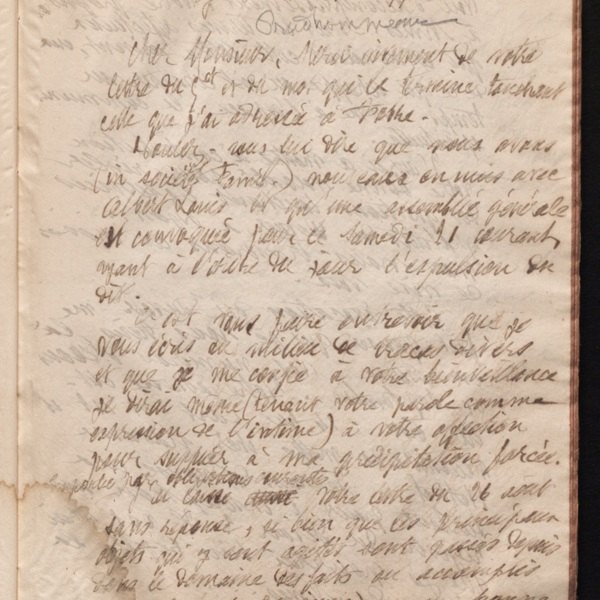 Prudhommeaux
Cher Monsieur, Merci vivement de votre
lettre du 5 ct et du mot qui la termine touchant
celle que j'ai adressée à
Voulez-vous lui dire que nous avons
(in société Famil.) nouveaux ennuis avec
Albert Louis et qu'une assemblée générale
est convoquée pour le samedi 21 courant,
ayant à l'ordre du jour l'expulsion du
dit.
C'est vous faire entrevoir que je
vous écris au milieu de tracas divers
et que je me confie à votre bienveillance
je dirai même (tenant votre parole comme
expression de l'intime) à votre affection
pour suppléer à ma précipitation forcée.
par obligations
J'ai laissé votre lettre du 26 août
sans réponse, si bien que les principaux
objets qui y sont agités sont passés depuis
dans le domaine des faits accomplis